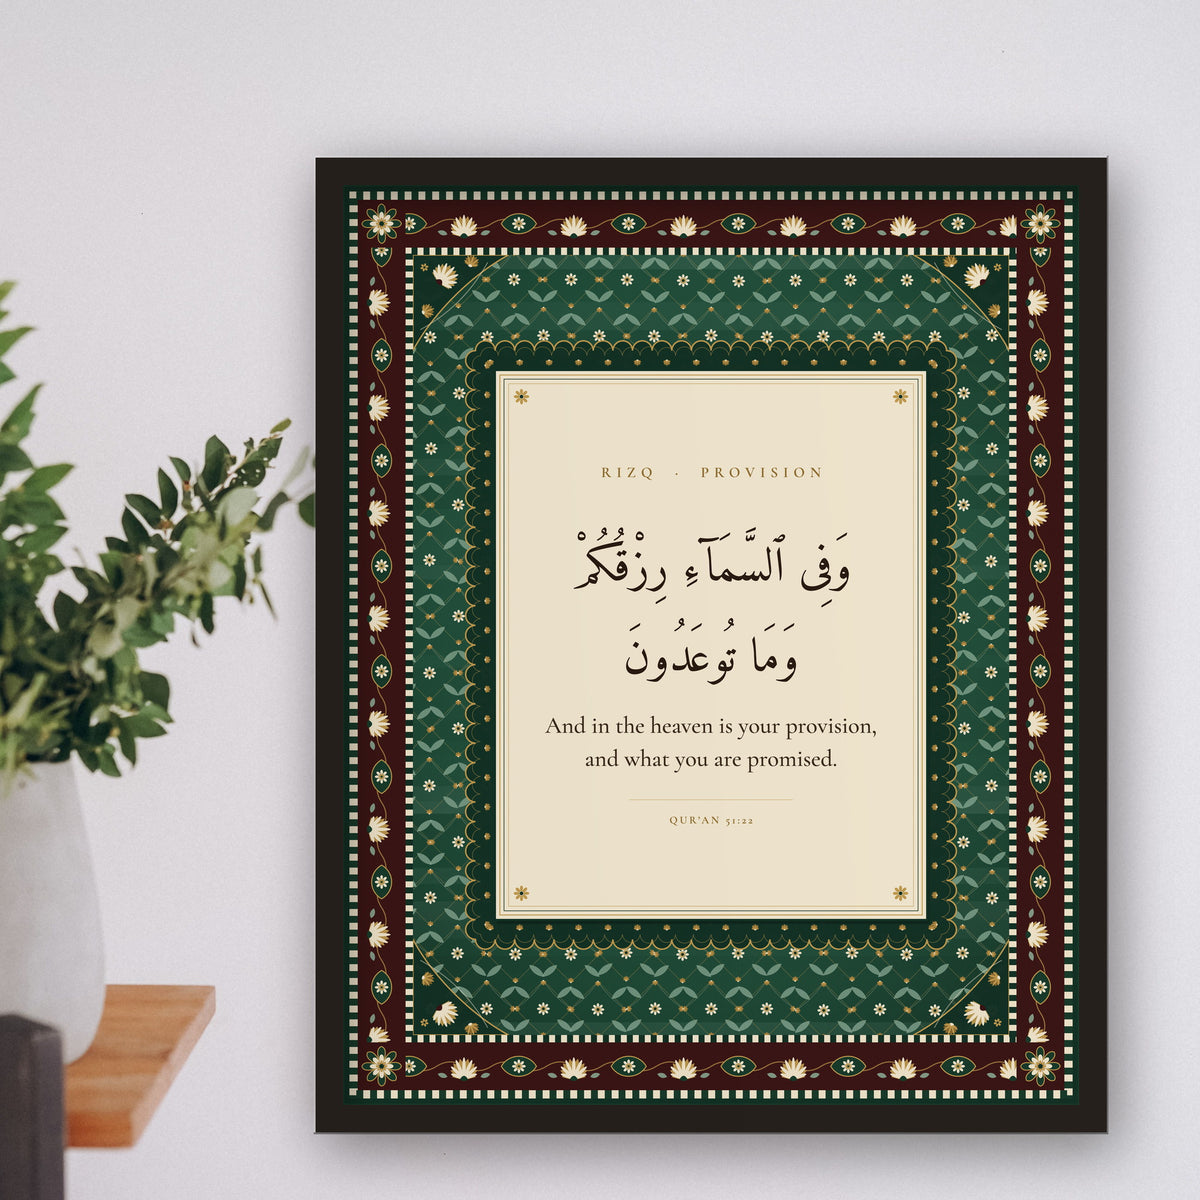 RIZQ · PROVISION
وَفِى ٱلسَّمَآءِ رِزْقُكُمْ
وَمَا تُوعَدُونَ
And in the heaven is your provision,
and what you are promised.
QUR'AN 51:22